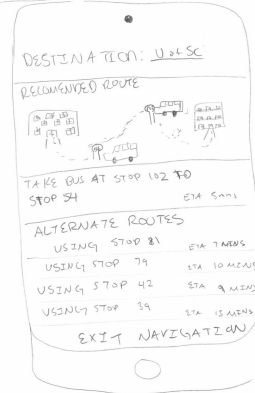 DESTINATION: U of SC
RECOMENDED ROUTE
TAKE BUS AT STOP 102 TO
STOP 54 ETA 5mins
ALTERNATE ROUTES
USING STOP 81 ETA 7 MINS
USING STOP 79 ETA 10 MINS
USING STOP 42 ETA 9 MINS
USING STOP 39 ETA 15 MINS
EXIT NAVIGATION